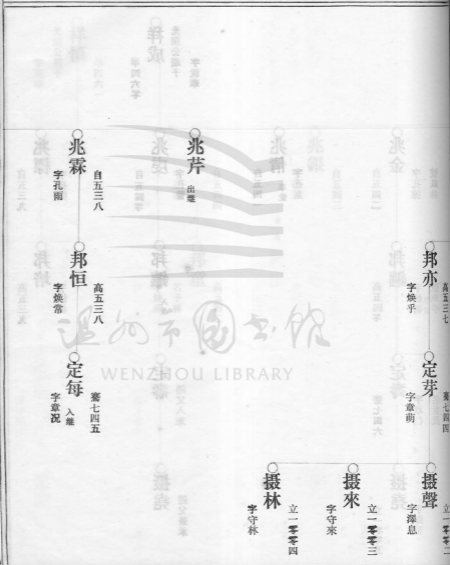 邦亦
高五三七
字煥乎
定芽
騫七四四
字章萌
摄聲
立一零零二
字澤息
摄來
立一零零三
字守來
摄林
立一零零四
字守林
兆芹
出繼
兆霖
自五三八
字孔雨
邦恒
高五三八
字煥常
定每
騫七四五
入繼
字章况
温州市图书馆
WENZHOU LIBRARY